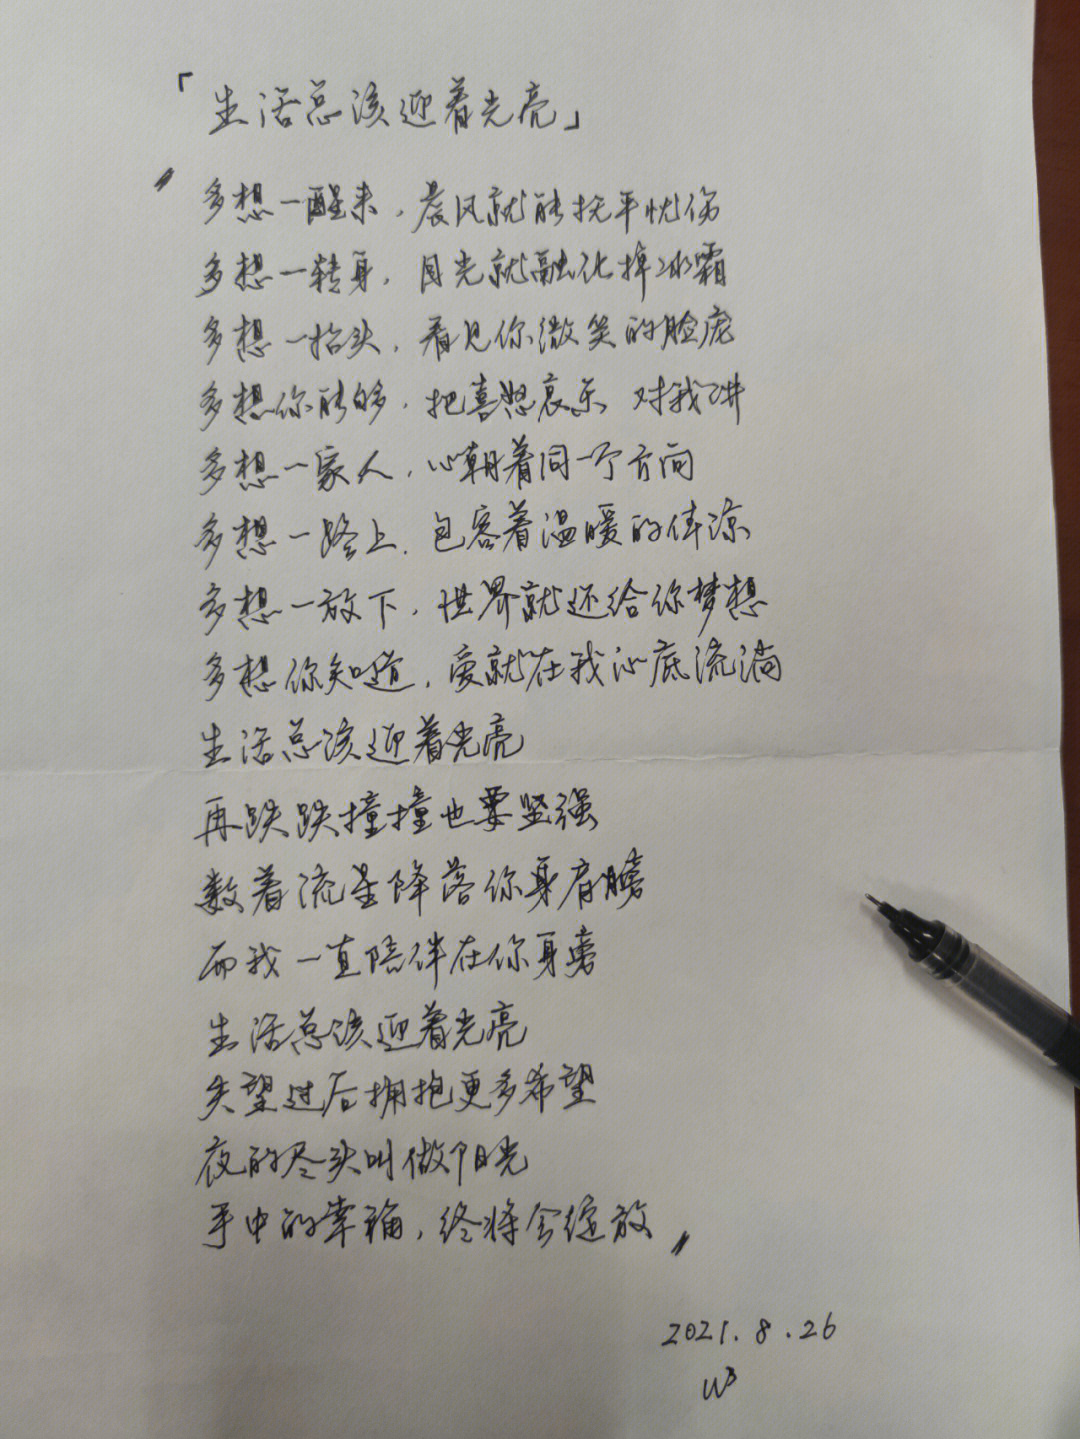 「生活总该迎着光亮」
"多想一醒来，晨风就能抚平忧伤
多想一转身，目光就融化掉冰霜
多想一抬头，看见你微笑的脸庞
多想你能够，把喜怒哀乐 对我讲
多想一家人，心朝着同一个方向
多想一路上，包容着温暖的体谅
多想一放下，世界就还给你梦想
多想你知道，爱就在我心底流淌
生活总该迎着光亮
再跌跌撞撞也要坚强
数着流星降落你身肩膀
而我一直陪伴在你身旁
生活总该迎着光亮
失望过后拥抱更多希望
夜的尽头叫做阳光
手中的幸福，终将会绽放"
2021.8.26